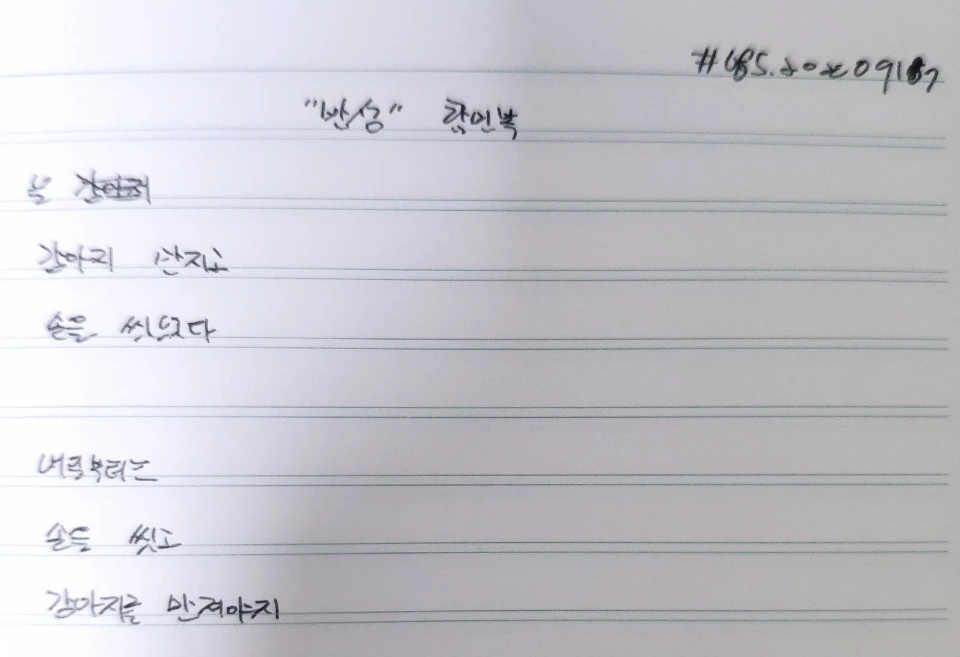 "반성" 함민복
늘
강아지 만지고
손을 씻었다
내일부터는
손을 씻고
강아지를 만져야지